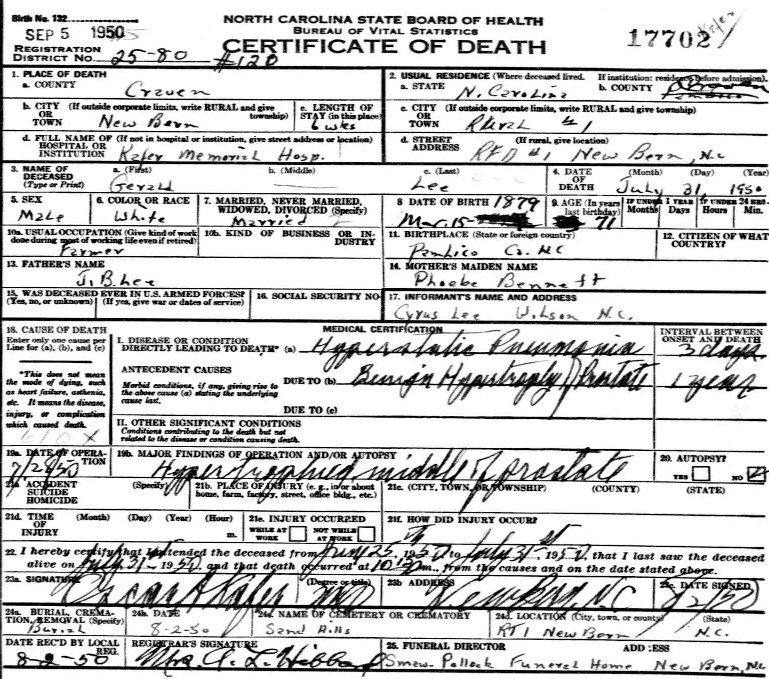 Birth No. 132
NORTH CAROLINA STATE BOARD OF HEALTH
BUREAU OF VITAL STATISTICS
SEP 5 1950
CERTIFICATE OF DEATH
17702
REGISTRATION DISTRICT No. 25-80 #120
1. PLACE OF DEATH
a. COUNTY Craven
2. USUAL RESIDENCE (Where deceased lived. If institution: residence before admission).
a. STATE N. Carolina b. COUNTY
b. CITY (If outside corporate limits, write RURAL and give township) OR TOWN New Bern
c. LENGTH OF STAY (in this place) 6 wks
c. CITY (If outside corporate limits, write RURAL and give township) OR TOWN Rural #1
d. FULL NAME OF (If not in hospital or institution, give street address or location) HOSPITAL OR INSTITUTION Kafer Memorial Hosp.
d. STREET ADDRESS (If rural, give location) RFD #1 New Bern, N.C
3. NAME OF DECEASED (Type or Print)
a. (First) Gerald
b. (Middle)
c. (Last) Lee
4. DATE OF DEATH (Month) (Day) (Year) July 31, 1950
5. SEX Male
6. COLOR OR RACE White
7. MARRIED, NEVER MARRIED, WIDOWED, DIVORCED (Specify) Married
8 DATE OF BIRTH 1879 Mar. 15
9. AGE (In years last birthday) 71
IF UNDER 1 YEAR Months Days
IF UNDER 24 HRS. Hours Min.
10a. USUAL OCCUPATION (Give kind of work done during most of working life even if retired) Farmer
10b. KIND OF BUSINESS OR INDUSTRY
11. BIRTHPLACE (State or foreign country) Pamlico Co. NC
12. CITIZEN OF WHAT COUNTRY?
13. FATHER'S NAME J. B. Lee
14. MOTHER'S MAIDEN NAME Phoebe Bennett
15. WAS DECEASED EVER IN U.S. ARMED FORCES? (Yes, no, or unknown) (If yes, give war or dates of service)
16. SOCIAL SECURITY NO.
17. INFORMANT'S NAME AND ADDRESS Cyrus Lee Wilson N.C.
18. CAUSE OF DEATH
Enter only one cause per Line for (a), (b), and (c)
MEDICAL CERTIFICATION
INTERVAL BETWEEN ONSET AND DEATH
I. DISEASE OR CONDITION DIRECTLY LEADING TO DEATH* (a) Hyperstatic Pneumonia 3 days
*This does not mean the mode of dying, such as heart failure, asthenia, etc. It means the disease, injury, or complication which caused death.
610X
ANTECEDENT CAUSES
Morbid conditions, if any, giving rise to the above cause (a) stating the underlying cause last.
DUE TO (b) Benign Hypertrophy of Prostate 1 year
DUE TO (c)
II. OTHER SIGNIFICANT CONDITIONS
Conditions contributing to the death but not related to the disease or condition causing death.
19a. DATE OF OPERATION 7/28/50
19b. MAJOR FINDINGS OF OPERATION AND/OR AUTOPSY Hypertrophied middle of prostate
20. AUTOPSY? YES NO
21a ACCIDENT SUICIDE HOMICIDE (Specify)
21b. PLACE OF INJURY (e. g., in or about home, farm, factory, street, office bldg., etc.)
21c. (CITY, TOWN, OR TOWNSHIP) (COUNTY) (STATE)
21d. TIME OF INJURY (Month) (Day) (Year) (Hour) m.
21e. INJURY OCCURRED WHILE AT WORK NOT WHILE AT WORK
21f. HOW DID INJURY OCCUR?
22. I hereby certify that I attended the deceased from 1950, to July 31st 1950, that I last saw the deceased
alive on July 31- 1950, and that death occurred at m., from the causes and on the date stated above.
23a. SIGNATURE Oscar A Kafer MD (Degree or title)
23b ADDRESS New Bern, NC
23c. DATE SIGNED
24a. BURIAL, CREMATION, REMOVAL (Specify) Burial
24b. DATE 8-2-50
24c. NAME OF CEMETERY OR CREMATORY Sand Hills
24d. LOCATION (City, town, or county) (State) RT 1 New Bern N.C.
DATE REC'D BY LOCAL REG. 8-2-50
REGISTRAR'S SIGNATURE Mrs.
25. FUNERAL DIRECTOR ADDRESS Smaw-Pollock Funeral Home New Bern, N.C